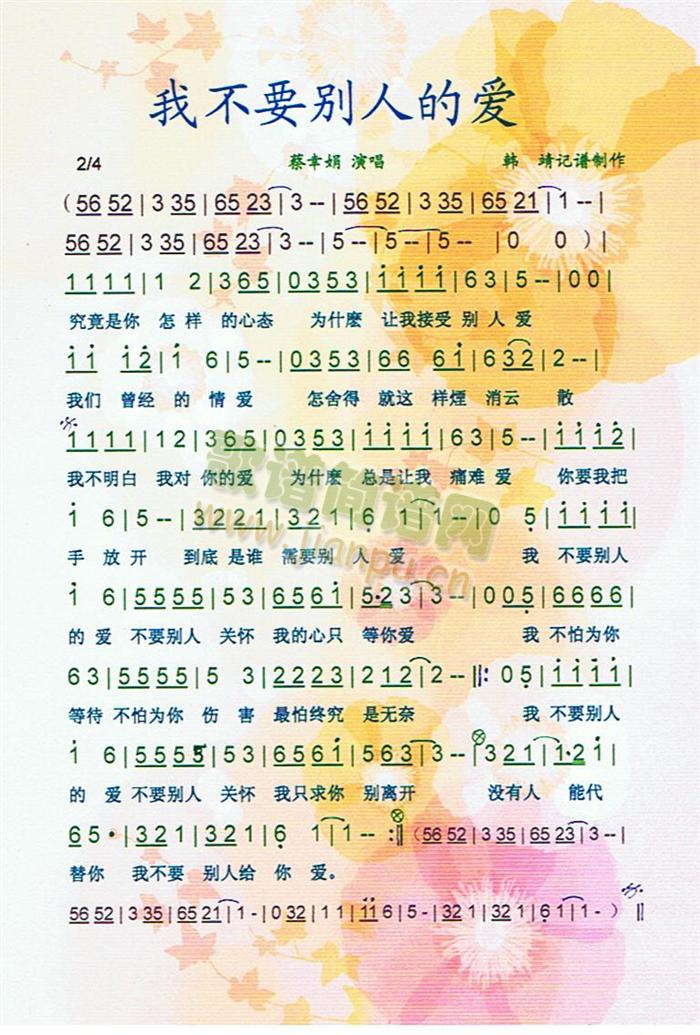 我不要别人的爱
2/4 蔡幸娟 演唱 韩 靖记谱制作
（56 52 | 3 35 | 65 23 | 3 -- | 56 52 | 3 35 | 65 21 | 1 -- |
56 52 | 3 35 | 65 23 | 3 -- | 5 -- | 5 -- | 5 -- | 0 0 ）|
1111 | 1 2 | 365 | 0353 | i i i i | 63 | 5 -- | 00 |
究竟是你 怎 样 的心态 为什麽 让我接受 别 人 爱
i i i 2 | i 6 | 5 -- | 0353 | 66 6i | 632 | 2 -- |
我们 曾经 的 情 爱 怎舍得 就这 样煙 消云 散
1111 | 12 | 365 | 0353 | i i i i | 63 | 5 -- | i i i 2 |
我不明白 我对 你的爱 为什麽 总是让我 痛难 爱 你要我把
i 6 | 5 -- | 3221 | 321 | 6 1 | 1 -- | 0 5 | i i i i |
手 放 开 到底 是谁 需要别 人 爱 我 不要别人
i 6 | 5555 | 53 | 656i | 5·23 | 3 -- | 05 | 6666 |
的 爱 不要别人 关怀 我的心只 等你爱 我 不怕为你
63 | 5555 | 5 3 | 2223 | 212 | 2 -- |: 05 | i i i i |
等待 不怕为你 伤 害 最怕终究 是无奈 我 不要别人
i 6 | 5555 | 53 | 656i | 563 | 3 -- | 321 | 1·2 i |
的 爱 不要别人 关怀 我只求你 别离开 没有人 能代
65· | 321 | 321 | 6 1 | 1 -- :|（56 52 | 3 35 | 65 23 | 3 -- |
替你 我不要 别人给 你 爱。
56 52 | 3 35 | 65 21 | 1 - | 0 32 | 1 11 | i i 6 | 5 - | 5 32 | 1 32 | 6 1 | 1 - ）||
歌谱简谱网
www.jianpu.cn